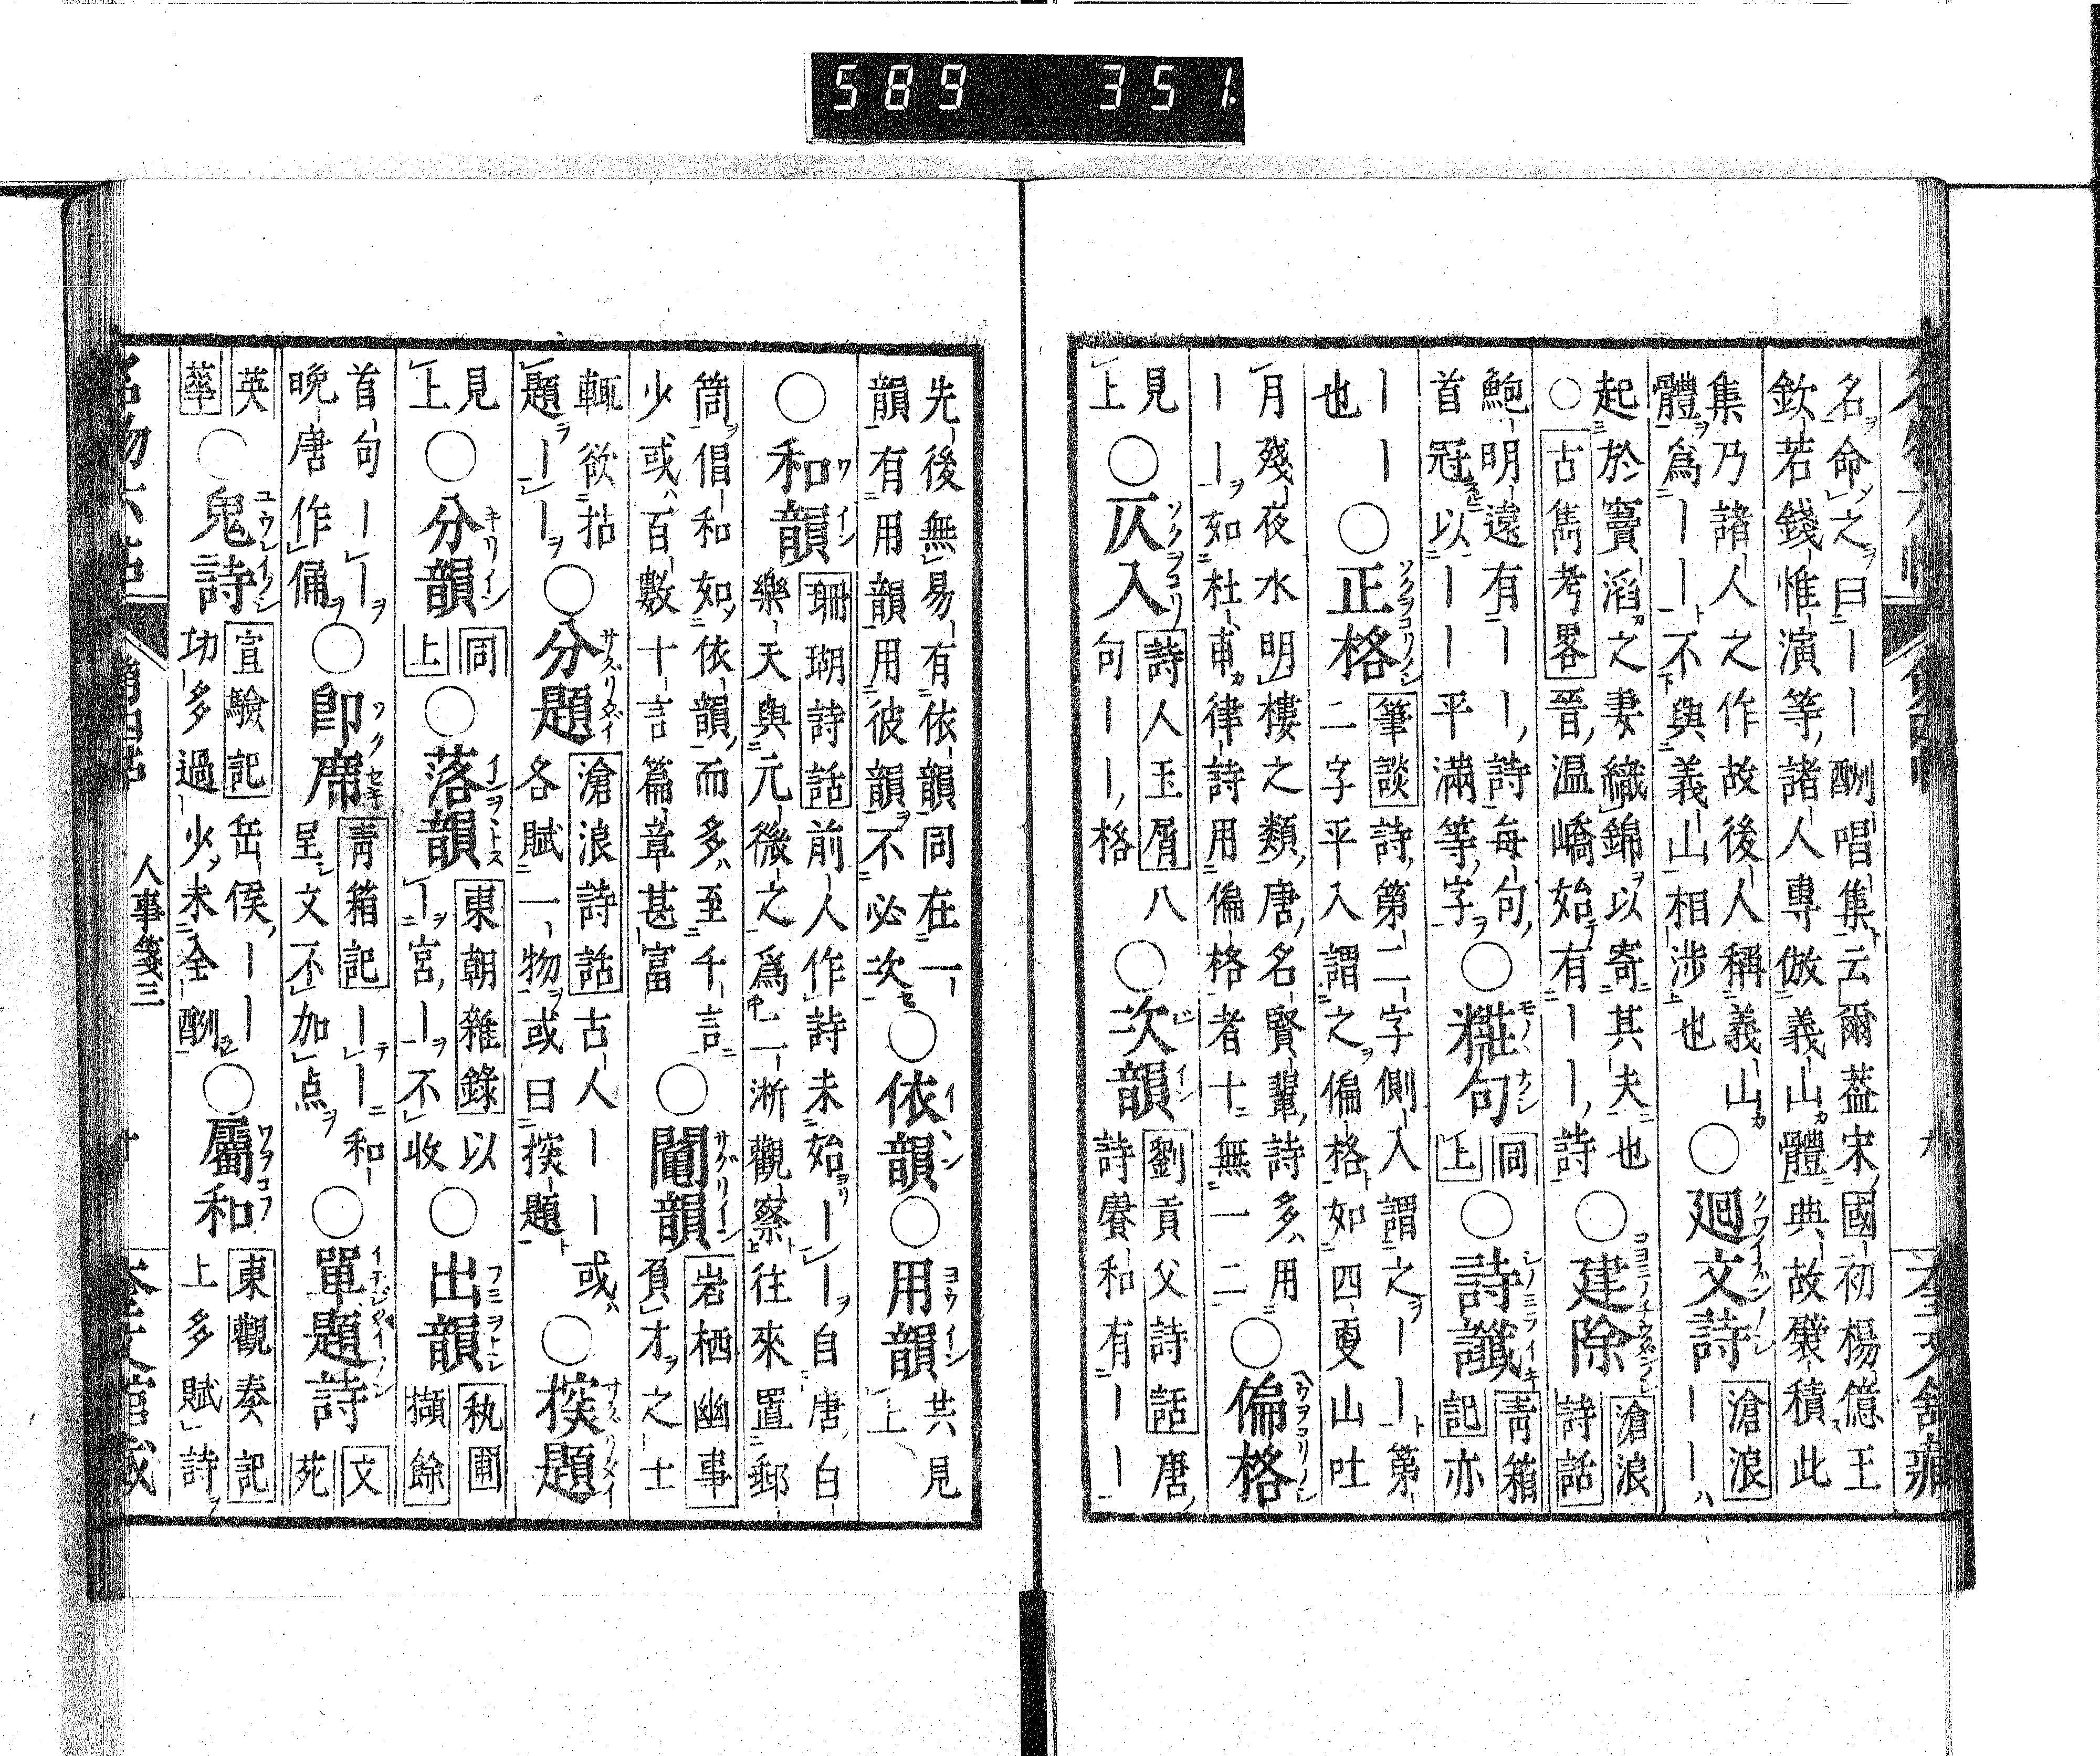 589 351.
名命之曰ーー酬唱集云爾葢宋國初楊億王
欽若錢惟演等諸人專倣義山體典故襞積此
集乃諸人之作故後人稱義山
體爲ーー不與義山相涉也
○廻文詩
滄浪
ーー
起於竇滔之妻織錦以寄其夫也
○古雋考畧晉温嶠始有ーー詩
○建除
滄浪
詩話
鮑明遠有ーー詩每句
首冠以ーー平滿等字
○粧句
同
上
○詩讖
靑箱
記亦
ーー
也
○正格
筆談詩第二字側入謂之ーー第
二字平入謂之偏格如四更山吐
月殘夜水明樓之類唐名賢輩詩多用
ーー如杜甫律詩用偏格者十無一二
○偏格
見
上
○仄入
詩人玉屑八
句ーー格
○次韻
劉貢父詩話唐
詩賡和有ーー
先後無易有依韻同在一
韻有用韻用彼韻不必次
○依韻
○用韻
共見
上
○和韻
珊瑚詩話前人作詩未始ーー自唐白
樂天與元微之爲二浙觀察往來置郵
筒倡和如依韻而多至千言
少或百數十言篇章甚富
○鬮韻
岩栖幽事
負才之士
輒欲拈
題ーー
○分題
滄浪詩話古人ーー或
各賦一物或曰探題
○探題
見
上
○分韻
同
上
○落韻
東朝雜錄以
ー宮ー不收
○出韻
秇圃
擷餘
首句ーー
晩唐作俑
○卽席
靑箱記ーー和
呈文不加点
○單題詩
文
苑
英
華
○鬼詩
宣驗記岳侯ーー
功多過少未全酬
○屬和
東觀奏記
上多賦詩
人事箋三